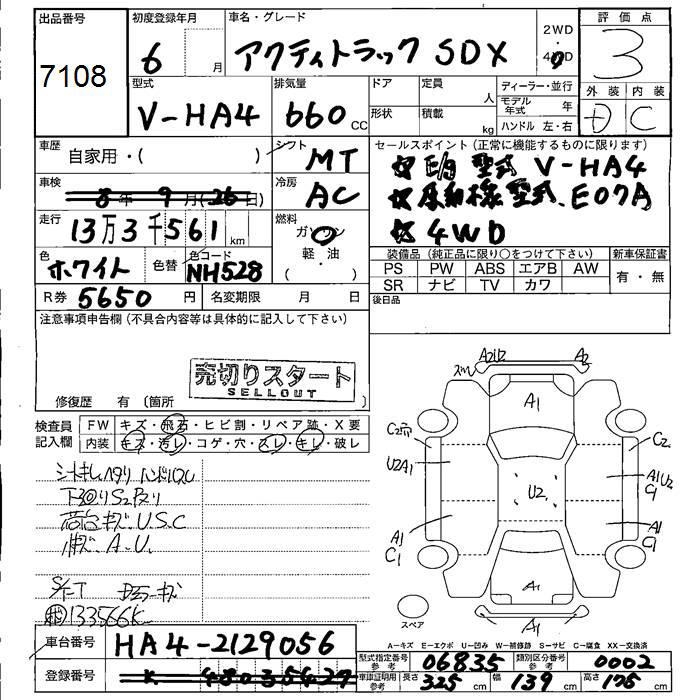 出品番号 初度登録年月 車名・グレード 2WD 評価点
7108 6 月 アクティトラック SDX 4WD 3
型式 排気量 ドア 定員 人 ディーラー・並行 外装 内装
V-HA4 660 CC 形状 積載 kg モデル年式 年 D C
ハンドル 左・右
車歴 自家用・( ) シフト MT セールスポイント (正常に機能するものに限ります)
☆E/g 型式 V-HA4
車検 8年 9月(26日) 冷房 AC ☆原動機型式 E07A
走行 13万3千561km 燃料 ガソリン 軽・油 ( ) ☆4WD
色 ホワイト 色替 色コード NH528 装備品 (純正品に限り○をつけて下さい) 新車保証書
PS PW ABS エアB AW 有・無
SR ナビ TV カワ
R券 5650 円 名変期限 月 日 後日品
注意事項申告欄 (不具合内容等は具体的に記入して下さい)
売切りスタート
SELLOUT
修復歴 有 〔箇所 〕
検査員記入欄 FW キズ・飛石・ヒビ割・リペア跡・X要
内装 キズ・汚レ・コゲ・穴・スレ・キレ・破レ
シートキレ ヘタリ ハンドルスレ
下回りS2
荷台キズ.U.S.C
A.U.
S/T
133566K
A2U2 A2
A1
C2 C2
U2A1 U2 A1U2 C1
A1 C1 A1 C1
A1
スペア A1
A-キズ E-エクボ U-凹み W-補修跡 S-サビ C-腐食 XX-交換済
車台番号 HA4-2129056 型式指定番号 参考 06835 類別区分番号 参考 0002
登録番号 480 3 5427 車庫証明用 参考 長さ 325 cm 幅 139 cm 高さ 175 cm